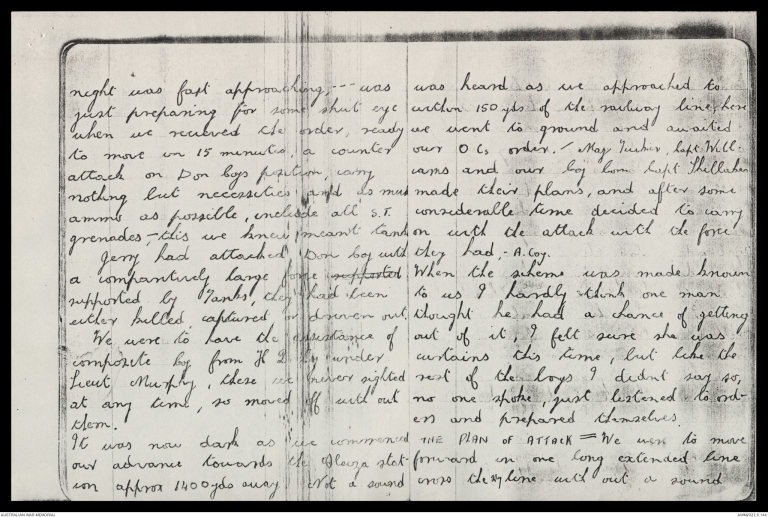 night was fast approaching, --- was
just preparing for some shut eye
when we recieved the order, ready
to move in 15 minutes, a counter
attack on Don Coys position, carry
nothing but necessities and as much
ammo as possible, include all S.T.
grenades, - this we knew meant tank
Jerry had attacked Don Coy with
a comparitively large force supported
supported by Tanks, they had been
either killed captured or driven out,
We were to have the assistance of
composite Coy from H Q Coy under
Lieut Murphy, these we never sighted
at any time, so moved off with out
them.
It was now dark as we commenced
our advance towards the stat-
ion approx 1400 yds away Not a sound
was heard as we approached to
within 150 yds of the railway line, here
we went to ground and awaited
our O Cs order. Maj Tucker, Capt Will-
iams and our Coy Com Capt
made their plans, and after some
considerable time decided to carry
on with the attack with the force
they had, - A. Coy.
When the scheme was made known
to us I hardly think one man
thought he had a chance of getting
out of it, I felt sure she was
curtains this time, but like the
rest of the boys I didnt say so,
no one spoke, just listened to ord-
ers and prepared themselves.
THE PLAN OF ATTACK = We were to move
forward in one long extended line
cross the ry line with out a sound
AUSTRALIAN WAR MEMORIAL